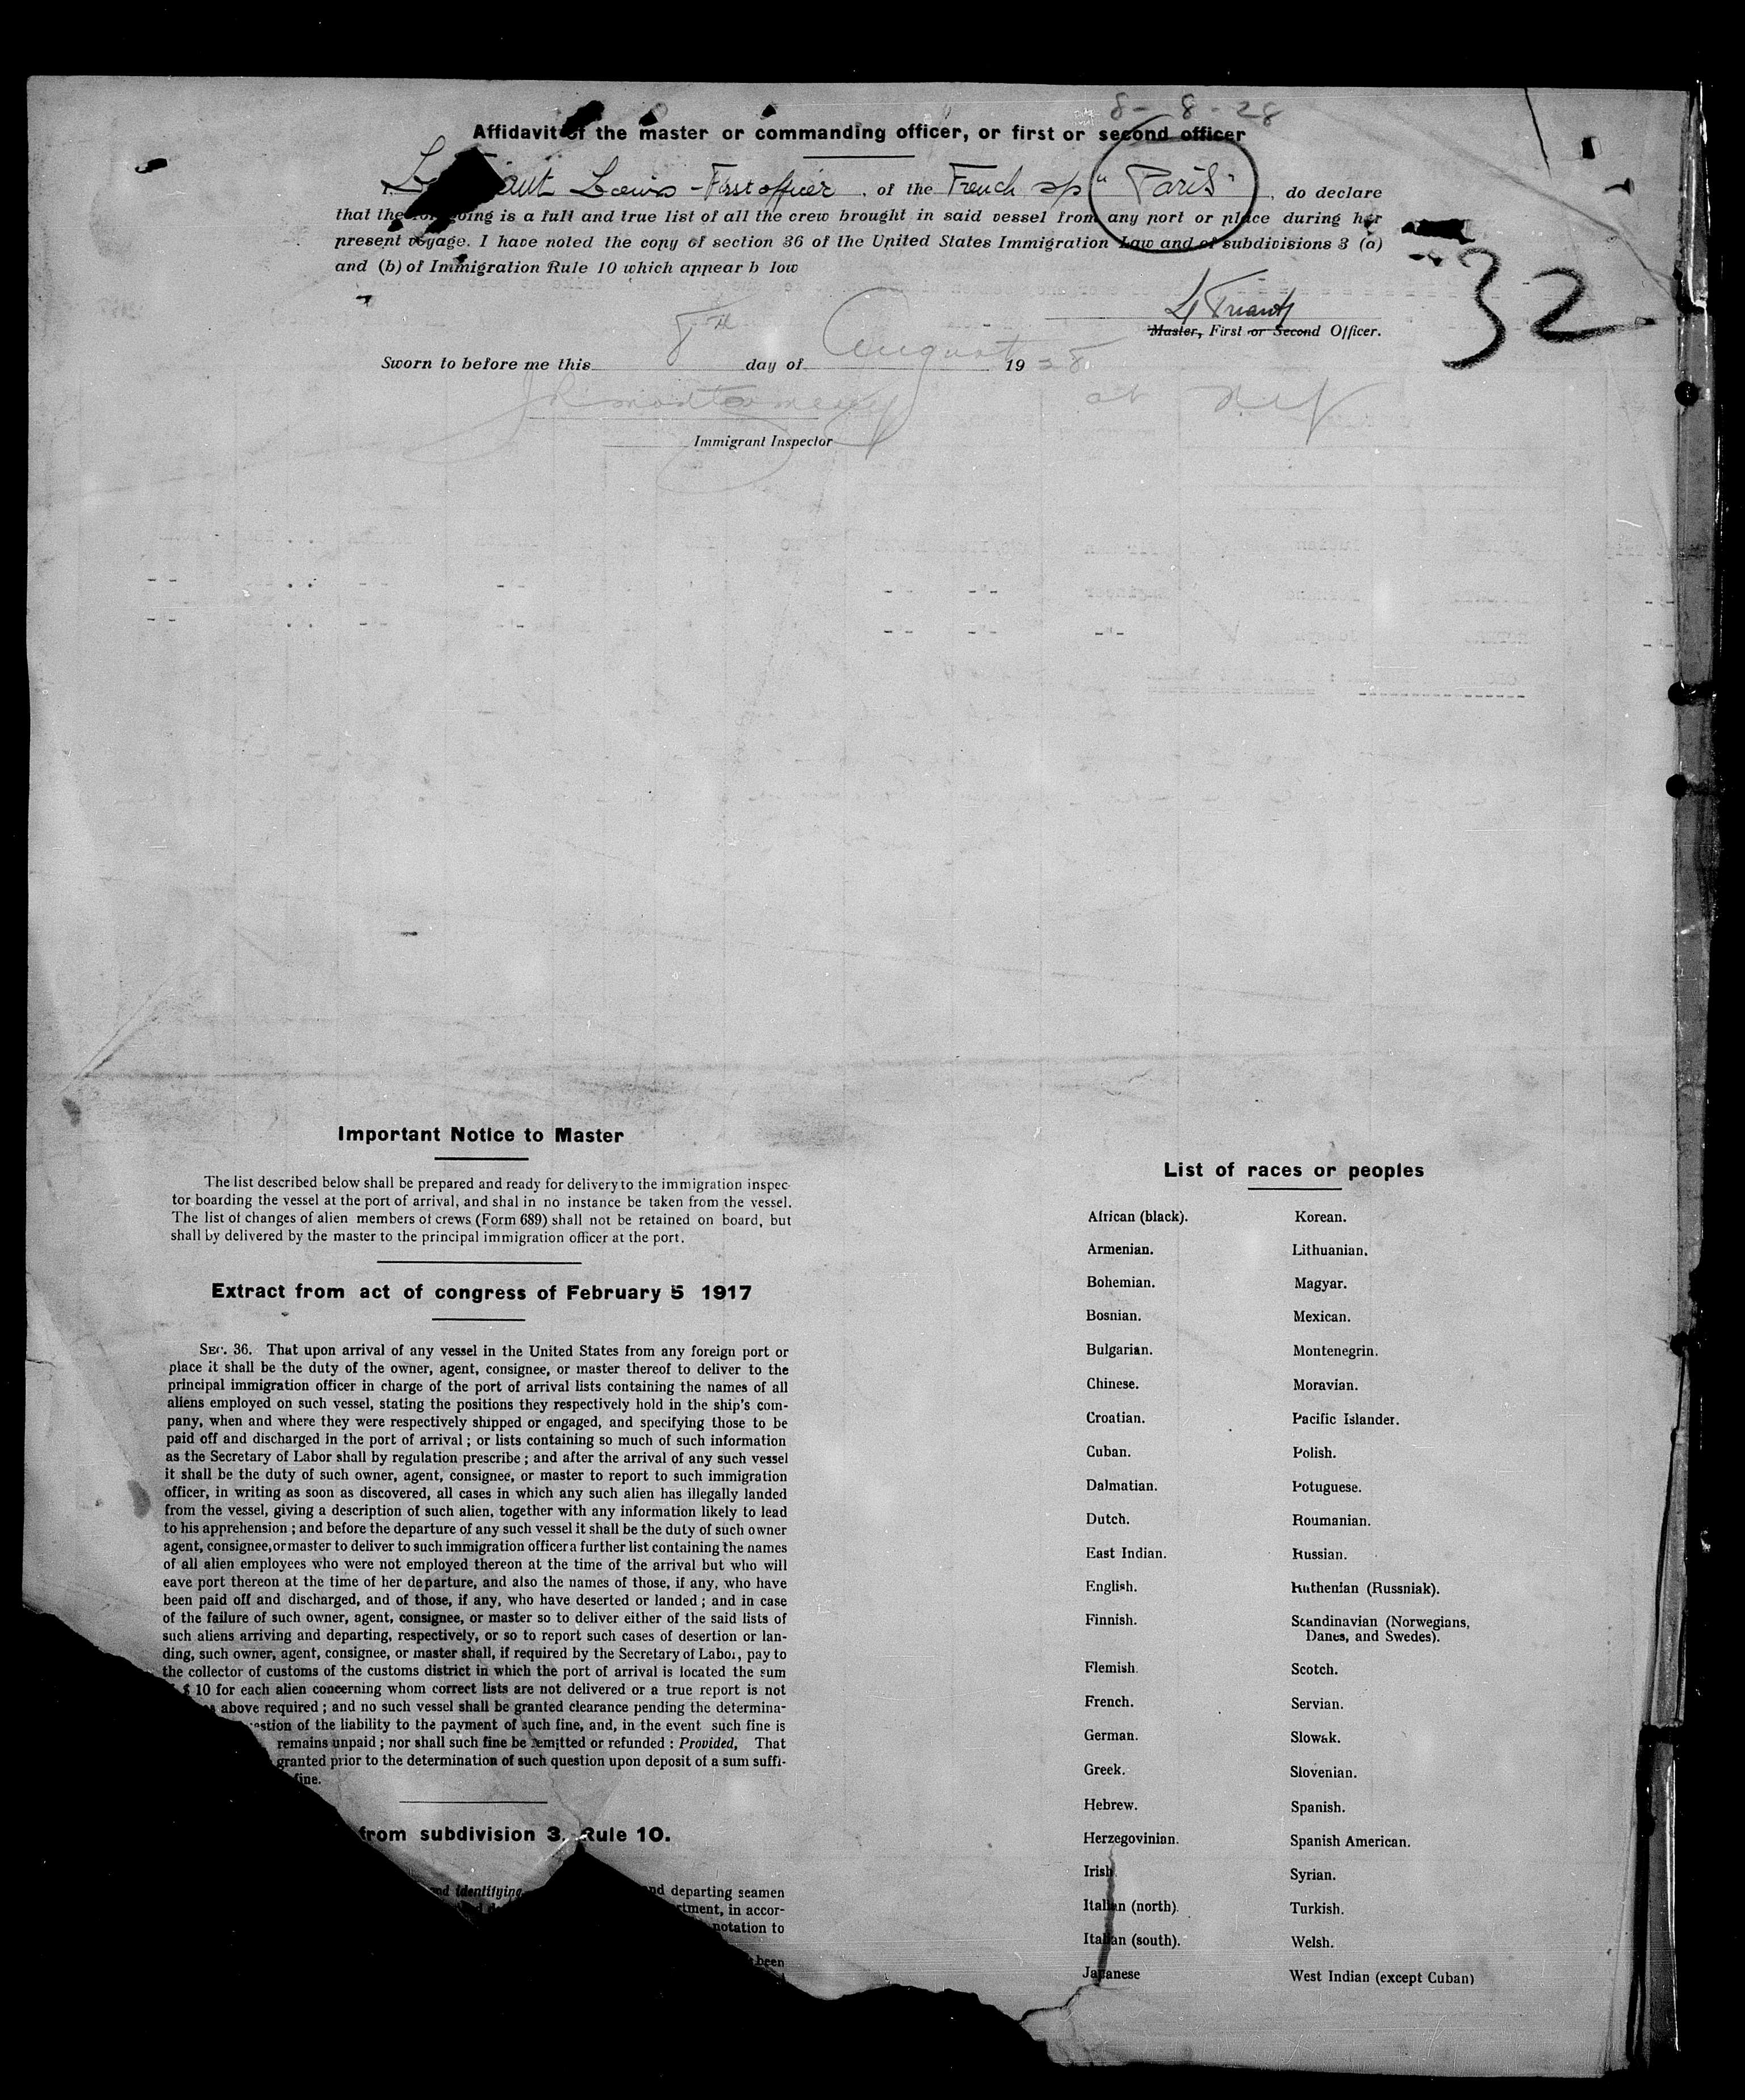 8 - 8 - 28
Affidavit of the master or commanding officer, or first or second officer
Louis - First officer, of the French sp " Paris ", do declare
that the foregoing is a full and true list of all the crew brought in said vessel from any port or place during her
present voyage. I have noted the copy of section 36 of the United States Immigration Law and of subdivisions 3 (a)
and (b) of Immigration Rule 10 which appear b low
32
Master, First or Second Officer.
Sworn to before me this 8th day of August 19 28
at
Immigrant Inspector
Important Notice to Master
The list described below shall be prepared and ready for delivery to the immigration inspec-
tor boarding the vessel at the port of arrival, and shal in no instance be taken from the vessel.
The list of changes of alien members of crews (Form 689) shall not be retained on board, but
shall by delivered by the master to the principal immigration officer at the port.
Extract from act of congress of February 5 1917
SEC. 36. That upon arrival of any vessel in the United States from any foreign port or
place it shall be the duty of the owner, agent, consignee, or master thereof to deliver to the
principal immigration officer in charge of the port of arrival lists containing the names of all
aliens employed on such vessel, stating the positions they respectively hold in the ship's com-
pany, when and where they were respectively shipped or engaged, and specifying those to be
paid off and discharged in the port of arrival ; or lists containing so much of such information
as the Secretary of Labor shall by regulation prescribe ; and after the arrival of any such vessel
it shall be the duty of such owner, agent, consignee, or master to report to such immigration
officer, in writing as soon as discovered, all cases in which any such alien has illegally landed
from the vessel, giving a description of such alien, together with any information likely to lead
to his apprehension ; and before the departure of any such vessel it shall be the duty of such owner
agent, consignee, or master to deliver to such immigration officer a further list containing the names
of all alien employees who were not employed thereon at the time of the arrival but who will
eave port thereon at the time of her departure, and also the names of those, if any, who have
been paid off and discharged, and of those, if any, who have deserted or landed ; and in case
of the failure of such owner, agent, consignee, or master so to deliver either of the said lists of
such aliens arriving and departing, respectively, or so to report such cases of desertion or lan-
ding, such owner, agent, consignee, or master shall, if required by the Secretary of Labor, pay to
the collector of customs of the customs district in which the port of arrival is located the sum
$ 10 for each alien concerning whom correct lists are not delivered or a true report is not
above required ; and no such vessel shall be granted clearance pending the determina-
estion of the liability to the payment of such fine, and, in the event such fine is
remains unpaid ; nor shall such fine be remitted or refunded : Provided, That
granted prior to the determination of such question upon deposit of a sum suffi-
fine.
from subdivision 3. Rule 10.
nd identifying nd departing seamen
rtment, in accor-
notation to
been
List of races or peoples
African (black). Korean.
Armenian. Lithuanian.
Bohemian. Magyar.
Bosnian. Mexican.
Bulgarian. Montenegrin.
Chinese. Moravian.
Croatian. Pacific Islander.
Cuban. Polish.
Dalmatian. Potuguese.
Dutch. Roumanian.
East Indian. Russian.
English. Ruthenian (Russniak).
Finnish. Scandinavian (Norwegians,
Danes, and Swedes).
Flemish. Scotch.
French. Servian.
German. Slowak.
Greek. Slovenian.
Hebrew. Spanish.
Herzegovinian. Spanish American.
Irish Syrian.
Italian (north). Turkish.
Italian (south). Welsh.
Japanese West Indian (except Cuban)